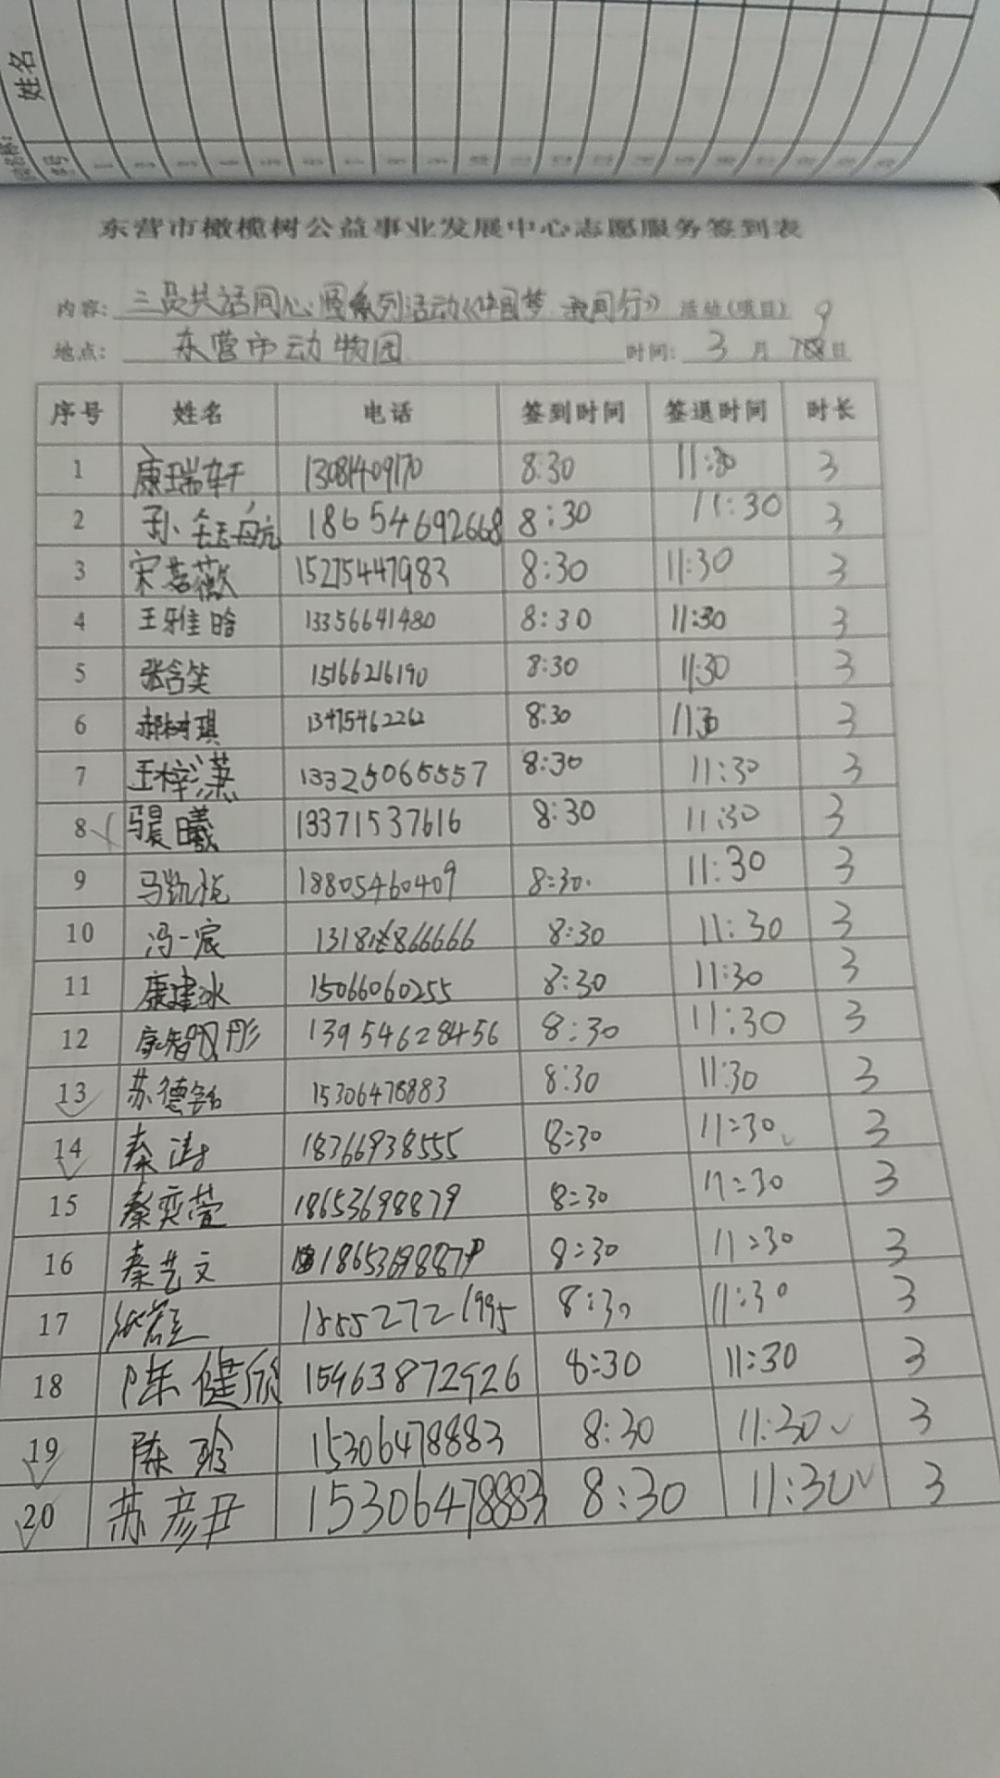 姓名
序号
东营市橄榄树公益事业发展中心志愿服务签到表
内容: 三员共话同心圆系列活动《中国梦 我同行》 活动(项目) 9
地点: 东营市动物园 时间: 3 月 日
序号 姓名 电话 签到时间 签退时间 时长
1 康瑞轩 13081409170 8:30 11:30 3
2 孙钰航 18654692668 8:30 11:30 3
3 宋若薇 15275447983 8:30 11:30 3
4 王雅晗 13356641480 8:30 11:30 3
5 张含笑 15166216190 8:30 11:30 3
6 郝树琪 13475462262 8:30 11:30 3
7 王梓潇 13325065557 8:30 11:30 3
8 晨曦 13371537616 8:30 11:30 3
9 马凯 18805460409 8:30. 11:30 3
10 冯一宸 8:30 11:30 3
11 康建冰 15066060255 8:30 11:30 3
12 13954628456 8:30 11:30 3
13 苏德铭 15306478883 8:30 11:30 3
14 秦涛 18366938555 8:30 11:30 3
15 秦奕萱 18653698879 8:30 11:30 3
16 秦艺文 18653698879 8:30 11:30 3
17 18552721995 8:30 11:30 3
18 陈健欣 15963872926 8:30 11:30 3
19 陈玲 15306478883 8:30 11:30 3
20 苏彦丹 15306478883 8:30 11:30 3